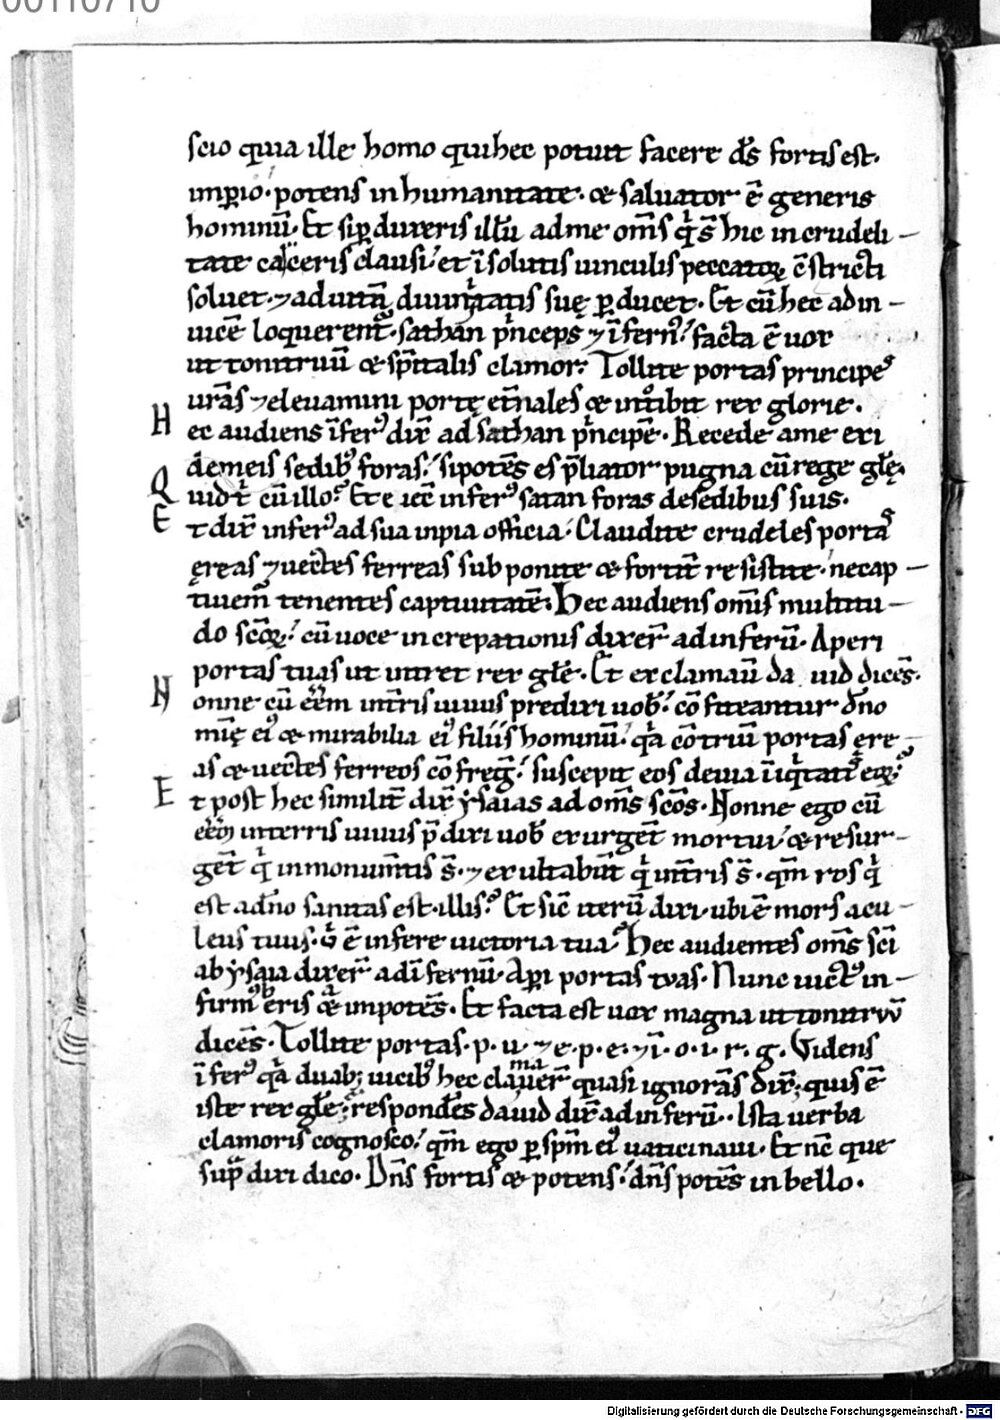 00110710
scio quia ille homo qui hec potuit facere d̄s fortis est.
inꝑio. potens in humanitate. & saluator ē generis
hominū. Et si ꝑduxeris illū ad me om̄s q̇ s̄ hic in crudeli-
tate carceris clausi. et ī solutis uinculis peccatoꝝ c̄stricti
soluet. ⁊ ad uitā diuinitatis suę ꝑducet. Et cū hec ad in-
uicē loquerent᷑. sathan pⁱnceps ⁊ īfernꝰ. facta ē uox
ut tonitruū & sp̄italis clamor. Tollite portas principes
urās ⁊ eleuamini portę et̄nales & intͦibit rex glorie.
Hec audiens īferꝰ dix̄ ad sathan pⁱncipē. Recede a me exi
de meis sedibꝰ foras. si potēs es p̄liator pugna cū rege gl̄ę.
Quid t' cū illo. Et eiecē inferꝰ satan foras de sedibus suis.
Et dix̄ inferꝰ ad sua inpia officia. Claudite crudeles portas
ęreas ⁊ uectes ferreas subponite & fortit̄ resistite. ne cap-
tiuem̄ tenentes captiuitatē. Hec audiens omīs multitu-
do scōꝝ. cū uoce increpationis dixer̄ ad inferū. Aperi
portas tuas ut intret rex gl̄e. Et exclamauī dauid dicēs.
Nonne cū eēm in t̄ris uiuus predixi uob̄. cōfiteantur dn̄o
mīę eiꝰ & mirabilia eiꝰ filiis hominū. qͣ cōtriuī portas ęre-
as & uectes ferreos cōfregͥ. suscepit eos de uia īiqͥtatis eoꝝ.
Et post hec similit̄ dix̄ ysaias ad om̄s scōs. Nonne ego cū
eēm in terris uiuus p̄dixi uob̄ exurgēt mortui. & resur-
gēt qͥ in monum̄tis s̄. ⁊ exultabūt qͥ in t̄ris s̄. qm̄ ros qͥ
est a dn̄o sanitas est illis. Et sic̄ iterū dixi ubi ē mors acu-
leus tuus. ů ē infere uictoria tua. Hec audientes om̄s sc̄i
ab ysaia dixer̄ ad īfernū. Aꝑi portas tuas. Nunc uictꝰ in-
firmꝰ eris & impotēs. Et facta est uox magna ut tonitruū
dicēs. Tollite portas. p. u. ⁊ e. p. e. ⁊ ī. o. i. r. g. Videns
īferꝰ qͣ duabꝫ uicibꝰ hec clamauer̄ quasi ignorās dix̄. quis ē
iste rex gl̄e. respondēs dauid dix̄ ad inferū. Ista uerba
clamoris cognosco. qm̄ ego ꝑ spm̄ eiꝰ uaticinaui. Et nc̄ que
supͣ dixi dico. Dn̄s fortis & potens. dn̄s potēs in bello.
Digitalisierung gefördert durch die Deutsche Forschungsgemeinschaft - DFG